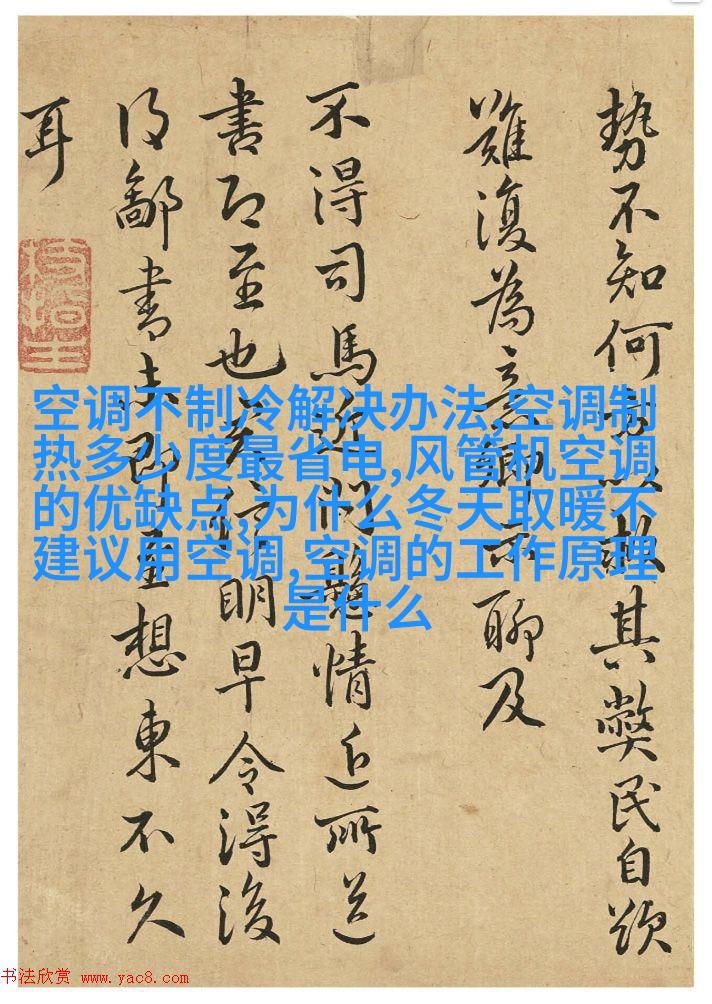 勢不知何方以救其弊民自
難復為意卿示聊及
不得司馬近問懸情近所送
書即至也 明早令得後
得鄙書未即至想東不久
耳
空调不制冷解决办法,空调制
热多少度最省电,风管机空调
的优缺点,为什么冬天取暖不
建议用空调,空调的工作原理
是什么
书法欣赏 www.yac8.com